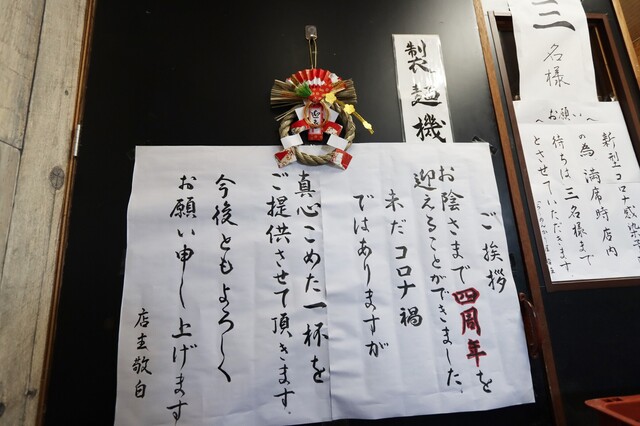 三
名様
〜お願い〜
新型コロナ感染
の為 満席時店内
待ちは三名様まで
とさせていただきます
製麺機
ご挨拶
お陰さまで四周年を
迎えることができました。
未だコロナ禍
ではありますが
真心こめた一杯を
ご提供させて頂きます。
今後ともよろしく
お願い申し上げます
店主敬白